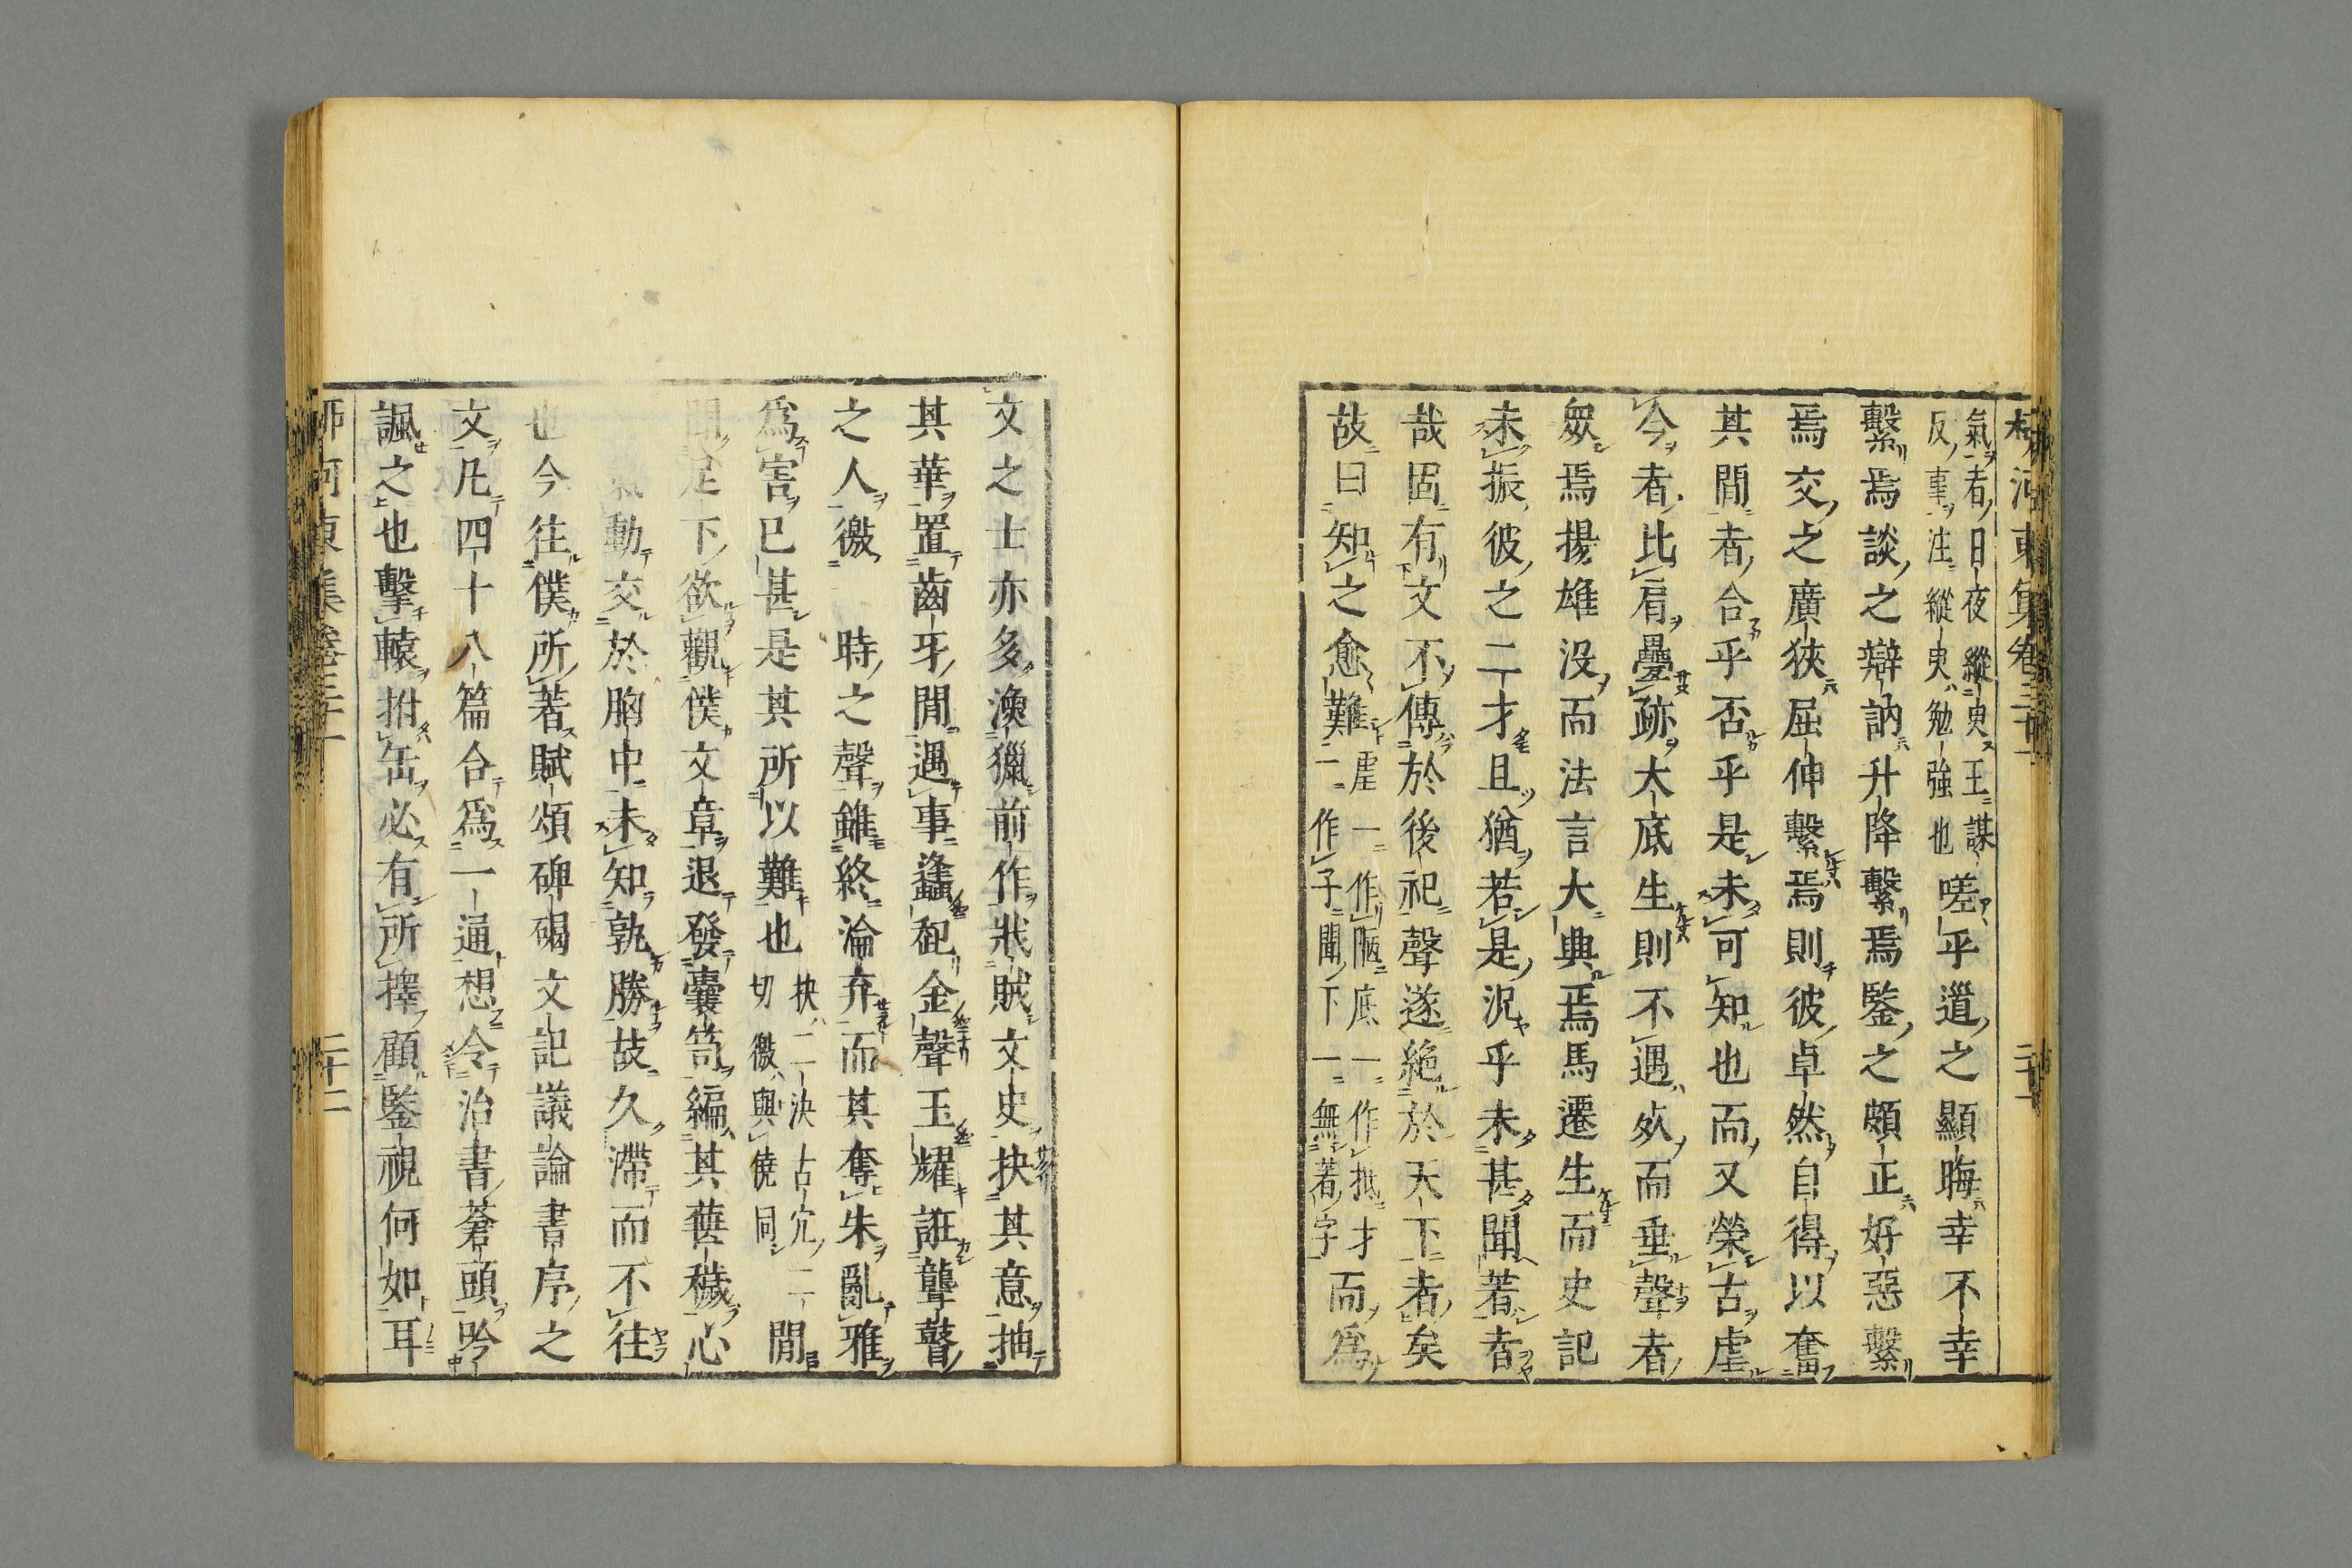 柳河東集卷三十一
二十一
氣者日夜縱臾王謀
反事注縱臾勉強也
嗟乎道之顯晦幸不幸
繫焉談之辯訥升降繫焉鑒之頗正好惡繫
焉交之廣狹屈伸繫焉則彼卓然自得以奮
其間者合乎否乎是未可知也而又榮古虐
今者比肩疊跡大底生則不遇死而垂聲者
衆焉揚雄没而法言大興焉馬遷生而史記
未振彼之二才且猶若是況乎未甚聞著者
哉固有文不傳於後祀聲遂絶於天下者矣
故曰知之愈難
虐一作陋底一作抵才
一作子聞下一無著字
而爲
文之士亦多漁獵前作戕賊文史抉其意抽
其華置齒牙間遇事蠭起金聲玉耀誑聾瞽
之人徼時之聲雖終淪弃而其奪朱亂雅
爲害已甚是其所以難也
抉一決古穴二
切徼與僥同
一間
聞足下欲觀僕文章退發囊笥編其蕪穢心
氣動交於胸中未知孰勝故久滯而不往
也今往僕所著賦頌碑碣文記議論書序之
文凡四十八篇合爲一通想令治書蒼頭吟
諷之也擊轅拊缶必有所擇顧鑒視何如耳
柳河東集卷三十一
二十二